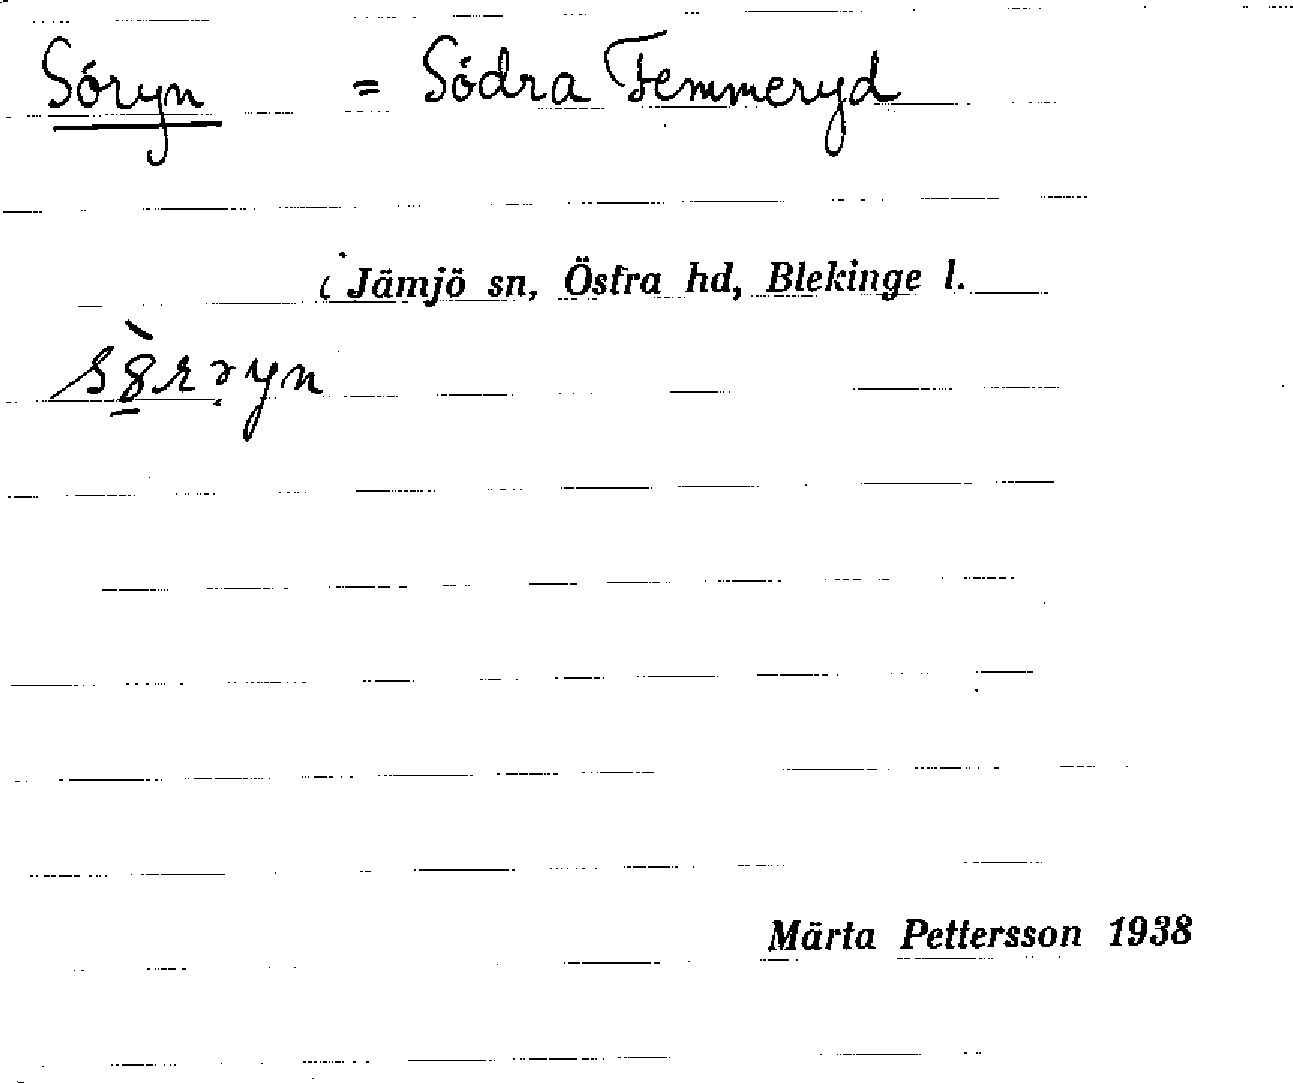 Söryn = Södra Femmeryd
i Jämjö sn, Östra hd, Blekinge l.
Märta Pettersson 1938